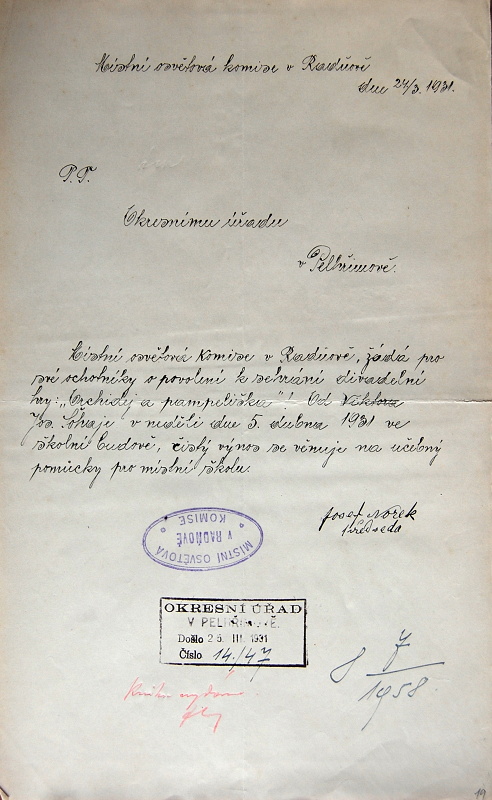 Místní osvětová komise v Radňově
dne 24/3. 1931.
P.T.
Okresnímu úřadu
v Pelhřimově.
Místní osvětová komise v Radňově, žádá pro
své ochotníky o povolení k sehrání divadelní
hry: „Orchidej a pampeliška"! Od Viktora
Jos. v neděli dne 5. dubna 1931 ve
školní budově, čistý výnos se věnuje na učebný
pomůcky pro místní školu.
Josef Norek
předseda
MÍSTNÍ OSVĚTOVÁ
KOMISE
V RADŇOVĚ
OKRESNÍ ÚŘAD
V PELHŘIMOVĚ.
Došlo 25. III. 1931
Číslo 14147
8 7
1958
19